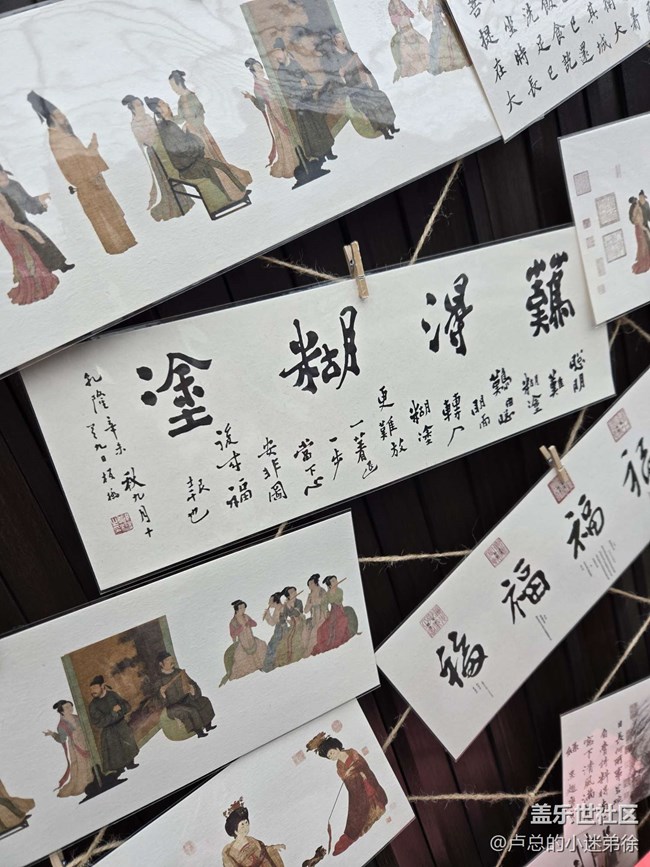 其城
已還
飯食訖
洗足已
坐時長
菩提在大
難得糊塗
聪明
難
糊塗
難由聪
明而
轉入
糊塗
更難放
一著退
一步
當下心
安非圖
後来福
報也
乾隆辛未秋九月十
九日板橋
福福福福
盖乐世社区
@卢总的小迷弟徐